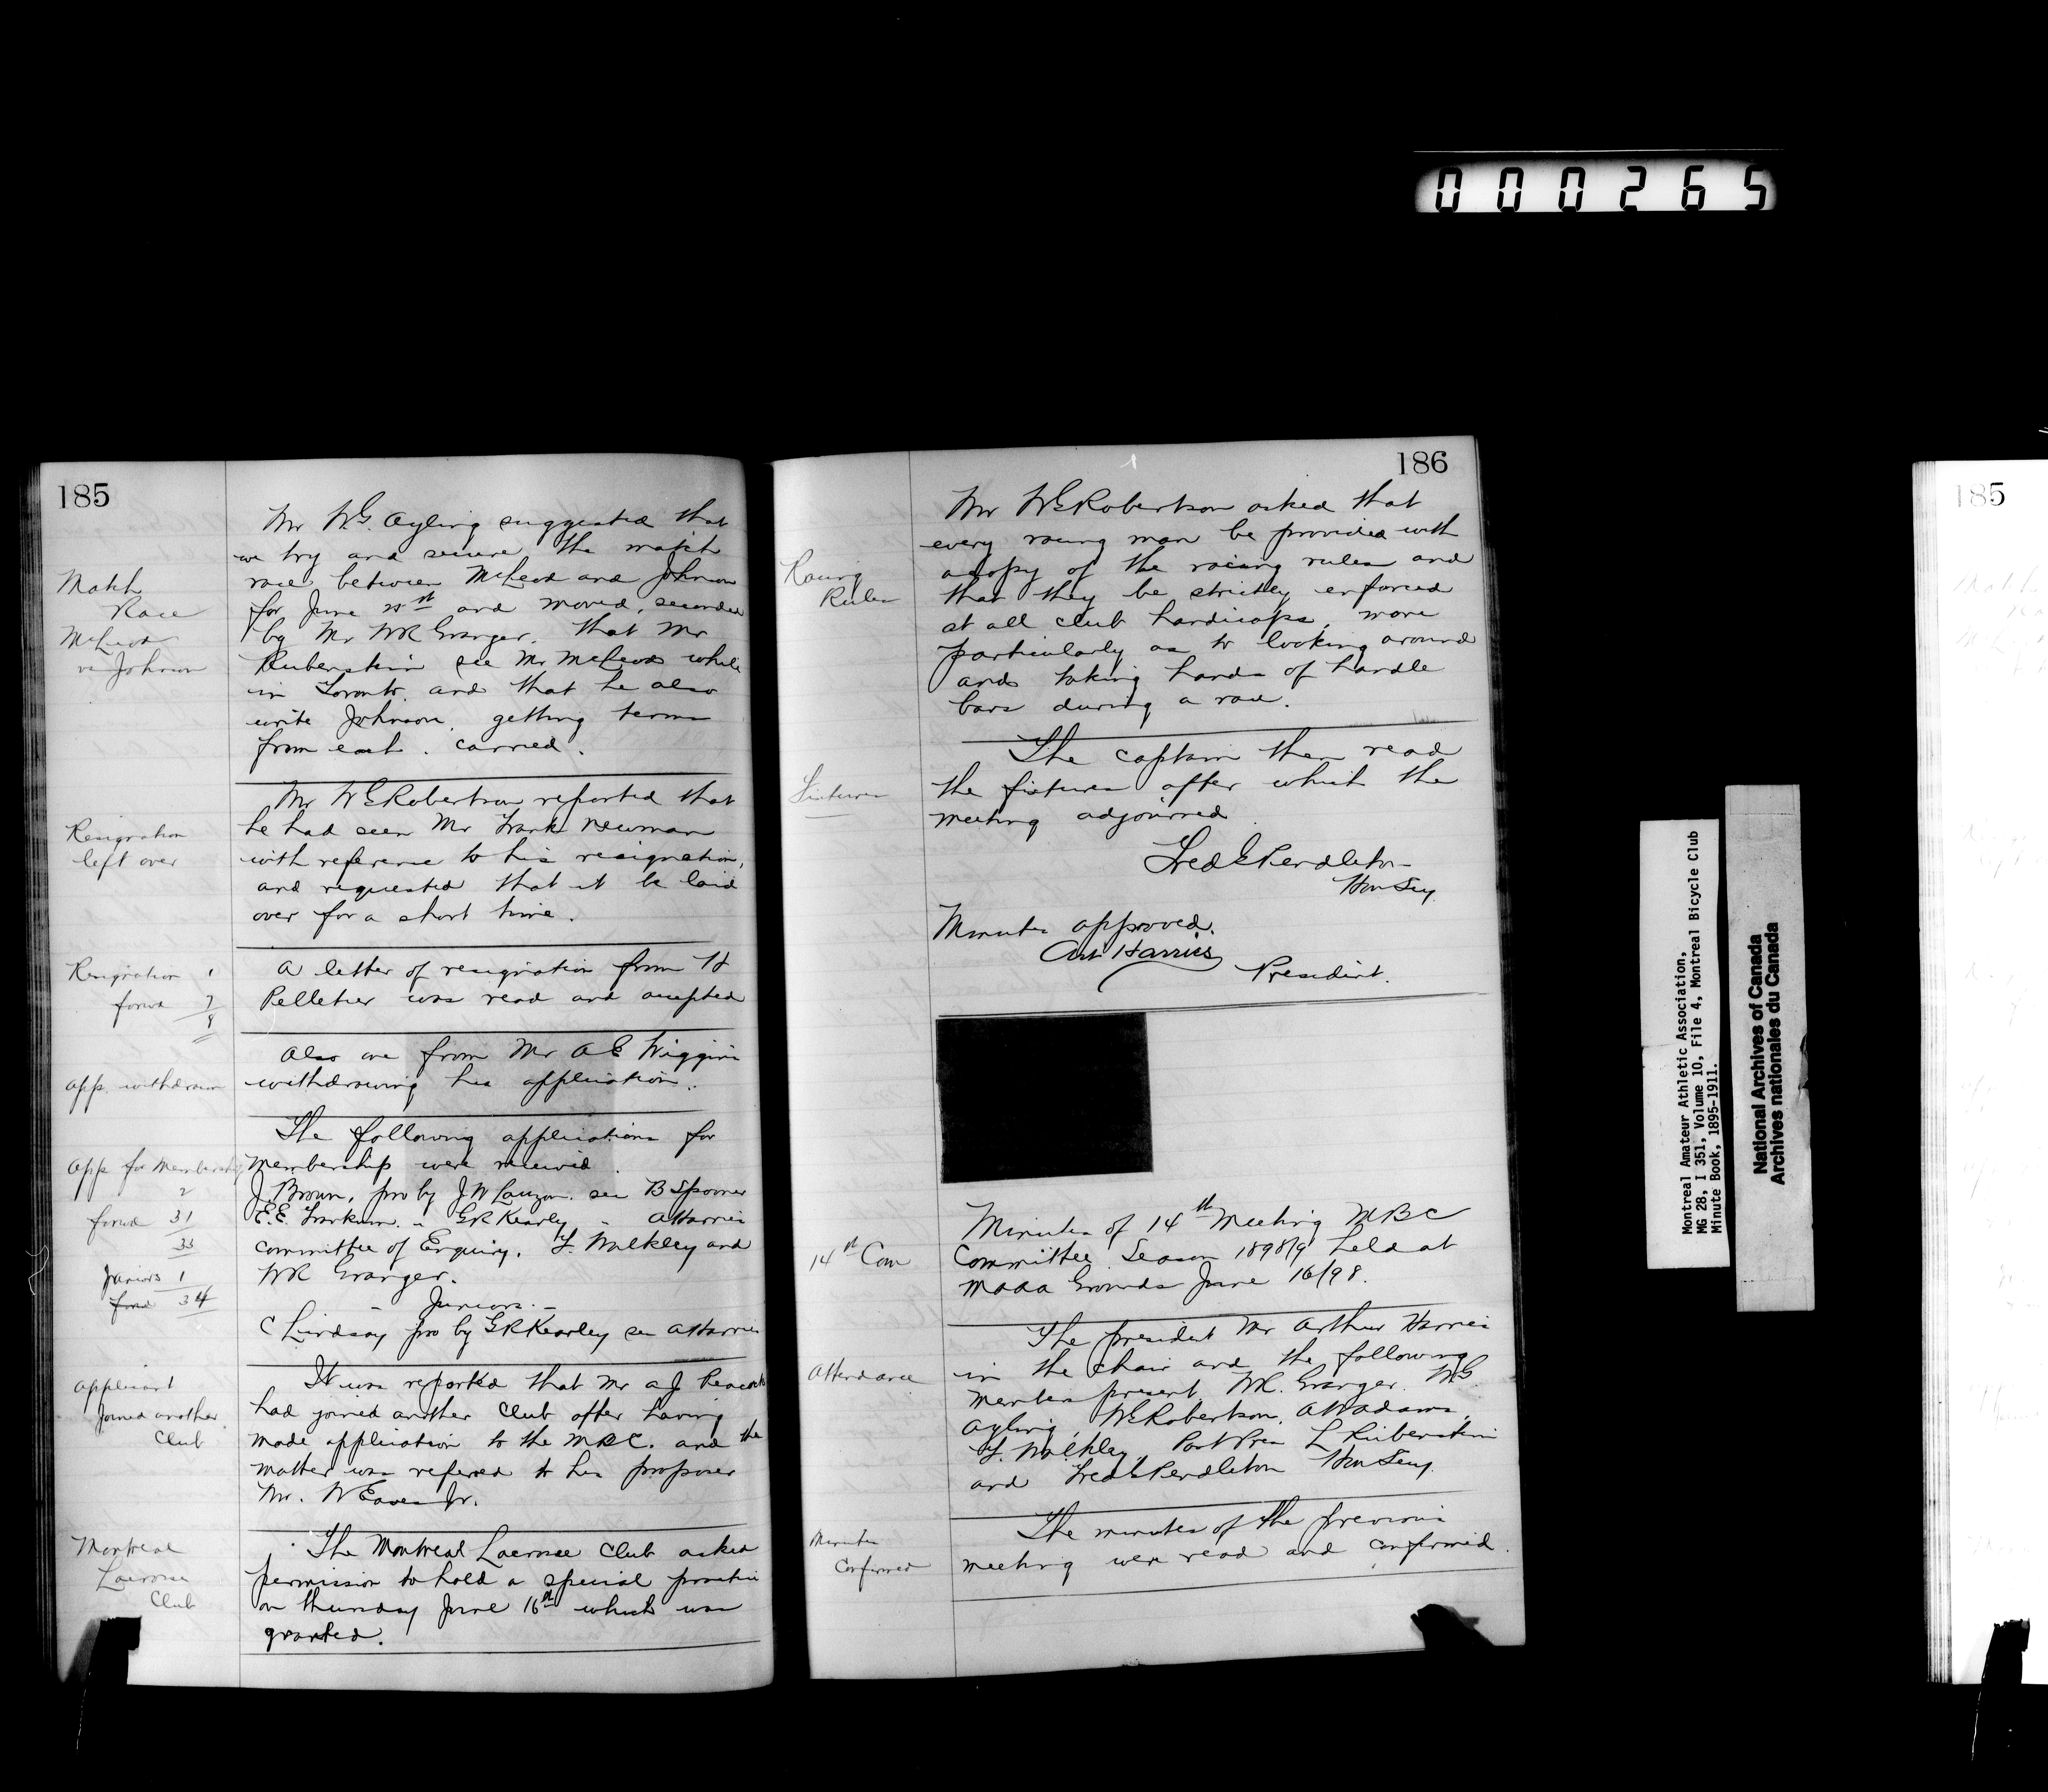 000265
185
Mr W.G. Ayling suggested that
we try and secure the match
race between McLeod and Johnson
for June st and moved, seconded
by Mr WR Granger. that Mr
Rubenstein see Mr McLeod while
in Toronto. and that he also
write Johnson. getting terms
from each. carried.
Match
Race
McLeod
vs Johnson
Mr WE Robertson reported that
he had seen Mr Frank Newman
with reference to his resignation,
and requested that it be laid
over for a short time.
Resignation
left over
A letter of resignation from H
Pelletier was read and accepted
Resignation 1
forwd 7
8
Also one from Mr A E Wiggins
withdrawing his application.
app. withdrawn
The following applications for
membership were received.
J. Brown, pro by J.W Lauzon. sec B Spooner
E.E. " GR Kearley " A Harries
committee of Enquiry. F. Walkley and
WR Granger.
app for Membership
2
forwd 31
33
Juniors 1
forwd 34
- Juniors. -
C Lindsay pro by G R Kearley sec A Harries
It was reported that Mr A J Peacock
had joined another Club after having
made application to the MBC. and the
matter was referred to his proposer
Mr. W Eaves Jr.
Applicant
Joined another
Club
The Montreal Lacrosse Club asked
permission to hold a special practice
on Thursday June 16th which was
granted.
Montreal
Lacrosse
Club
186
Mr WE Robertson asked that
every racing man be provided with
a copy of the racing rules and
that they be strictly enforced
at all club handicaps, more
particularly as to looking around
and taking hands of handle
bars during a race.
Racing
Rules
The captain then read
the fixtures after which the
meeting adjourned
Fixtures
Fred E Pendleton
Hon Secy.
Minutes approved.
Art Harries
President.
Minutes of 14th Meeting MBC
Committee Season 1898/9 held at
MAAA Grounds June 16/98.
14th Com
The president Mr Arthur Harries
in the chair and the following
members present. WR. Granger. W.G.
Ayling, WE Robertson. AW Adams,
F. Walkley, Past Pres L Rubenstein
and Fred E Pendleton Hon Secy.
Attendance
The minutes of the previous
meeting were read and confirmed.
Minutes
Confirmed
Montreal Amateur Athletic Association,
MG 28, I 351, Volume 10, File 4, Montreal Bicycle Club
Minute Book, 1895-1911.
National Archives of Canada
Archives nationales du Canada
185